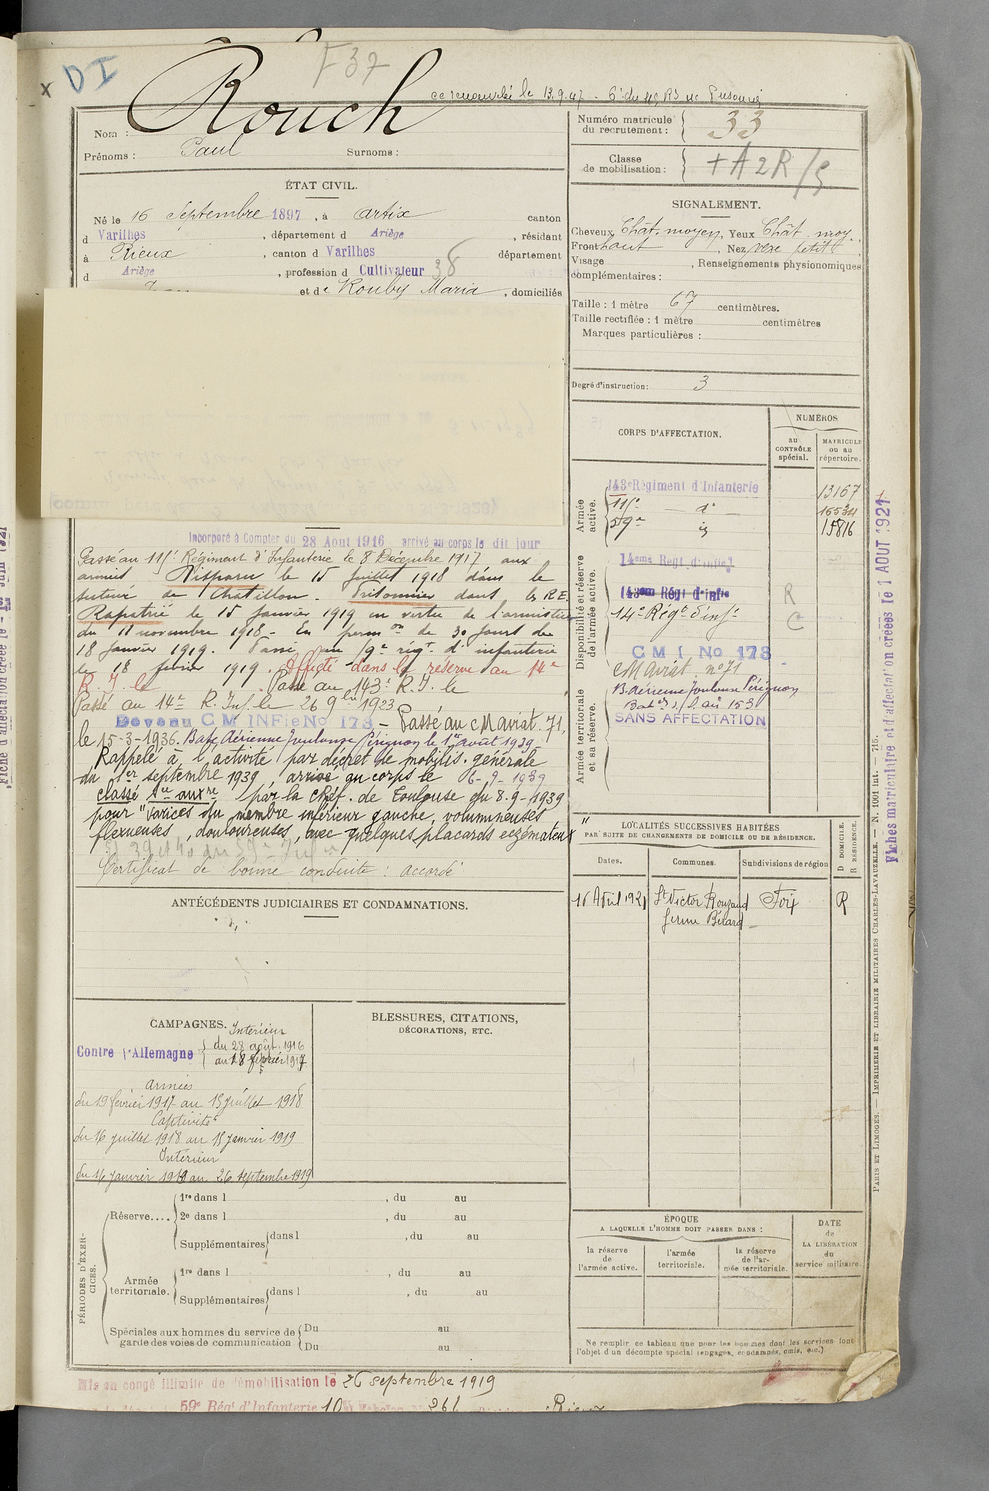 DI
F37
x
Rouch
ce renouvelé le 13.9.47
Nom :
Prénoms : Paul Surnoms :
ÉTAT CIVIL.
Né le 16 Septembre 1897, à Artix canton
d Varilhes, département d Ariège, résidant
à Rieux, canton d Varilhes département
d Ariège, profession d Cultivateur 38
et de Rouby Maria, domiciliés
Incorporé à Compter du 28 Août 1916 arrivé au corps le dit jour
Passé au 111e Régiment d'Infanterie le 8 Décembre 1917 aux
armées. Disparu le 15 juillet 1918 dans le
secteur de Chatillon. Prisonnier dans le R.E.
Rapatrié le 15 Janvier 1919 en vertu de l'armistice
du 11 novembre 1918. - En permon de 30 jours du
18 Janvier 1919. Passé au 59e rég. d'infanterie
le 18 février 1919. Affecté dans la réserve au 14e
R.I. le Passé au 143e R.I. le
Passé au 14e R. Inf. le 26 9 1923
Devenu CM INFie No 173 - Passé au CM aviat. 71,
le 15-3-1936. Base Aérienne Toulouse Pérignon le 1er août 1939
Rappelé à l'activité par décret de mobilis. générale
du 1er septembre 1939, arrivé au corps le 6-9-1939
classé sce auxre par la C.Réf. de Toulouse du 8-9-1939
pour "varices du membre inférieur gauche, volumineuses
flexueuses, douloureuses, avec quelques placards eczémateux"
Certificat de bonne conduite : accordé
ANTÉCÉDENTS JUDICIAIRES ET CONDAMNATIONS.
CAMPAGNES.
Intérieur
Contre l'Allemagne
du 28 août 1916
au 18 février 1917
Armées
du 19 février 1917 au 15 juillet 1918
Captivité
du 16 juillet 1918 au 15 janvier 1919
Intérieur
du 16 janvier 1919 au 26 septembre 1919
BLESSURES, CITATIONS,
DÉCORATIONS, ETC.
PÉRIODES D'EXERCICES.
Réserve....
1re dans l , du au
2e dans l , du au
Supplémentaires dans l , du au
Armée
territoriale.
1re dans l , du au
Supplémentaires dans l , du au
Spéciales aux hommes du service de
garde des voies de communication
Du au
Du au
Mis en congé illimité de démobilisation le 26 septembre 1919
59e Régt d'Infanterie 10 261
Numéro matricule
du recrutement : 33
Classe
de mobilisation : +A2R/5
SIGNALEMENT.
Cheveux Chât. moyen, Yeux Chât. moy.
Front haut, Nez vexe petit
Visage , Renseignements physionomiques
complémentaires :
Taille : 1 mètre 67 centimètres.
Taille rectifiée : 1 mètre centimètres
Marques particulières :
Degré d'instruction : 3
CORPS D'AFFECTATION.
NUMÉROS
au
CONTRÔLE
spécial.
MATRICULE
ou au
répertoire.
Armée
active.
143e Régiment d'Infanterie 13167
111e de 16534
59e id 15816
Disponibilité et réserve
de l'armée active.
14eme Régt d'infie
143eme Régt d'infie R
14e Régt d'inf. C
CM I No 173
CM aviat. no 71
B. Aérienne Toulouse Pérignon
SANS AFFECTATION
Armée territoriale
et sa réserve.
LOCALITÉS SUCCESSIVES HABITÉES
PAR SUITE DE CHANGEMENTS DE DOMICILE OU DE RÉSIDENCE.
Dates.
Communes.
Subdivisions de région
D DOMICILE.
R RÉSIDENCE.
16 Avril 1921 St Victor Rouzaud Foix R
ferme Bérard
ÉPOQUE
A LAQUELLE L'HOMME DOIT PASSER DANS :
la réserve
de
l'armée active.
l'armée
territoriale.
la réserve
de l'ar-
mée territoriale.
DATE
de
LA LIBÉRATION
du
service militaire.
Ne remplir ce tableau que pour les hommes dont les services font
l'objet d'un décompte spécial (engagés, condamnés, omis, etc.)
PARIS ET LIMOGES. — IMPRIMERIE ET LIBRAIRIE MILITAIRES CHARLES-LAVAUZELLE. — N. 1001 int. — 715.
Fiches matriculaire et d'affectation créées le 1 AOUT 1921